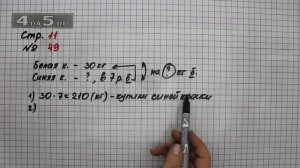 4DA5.RU
Стр. 11
№ 49
Белая к. – 30 кг
Синяя к. – ?, в 7 р. б. на ? кг б.
1) 30 · 7 = 210 (кг) – купили синей краски
2)